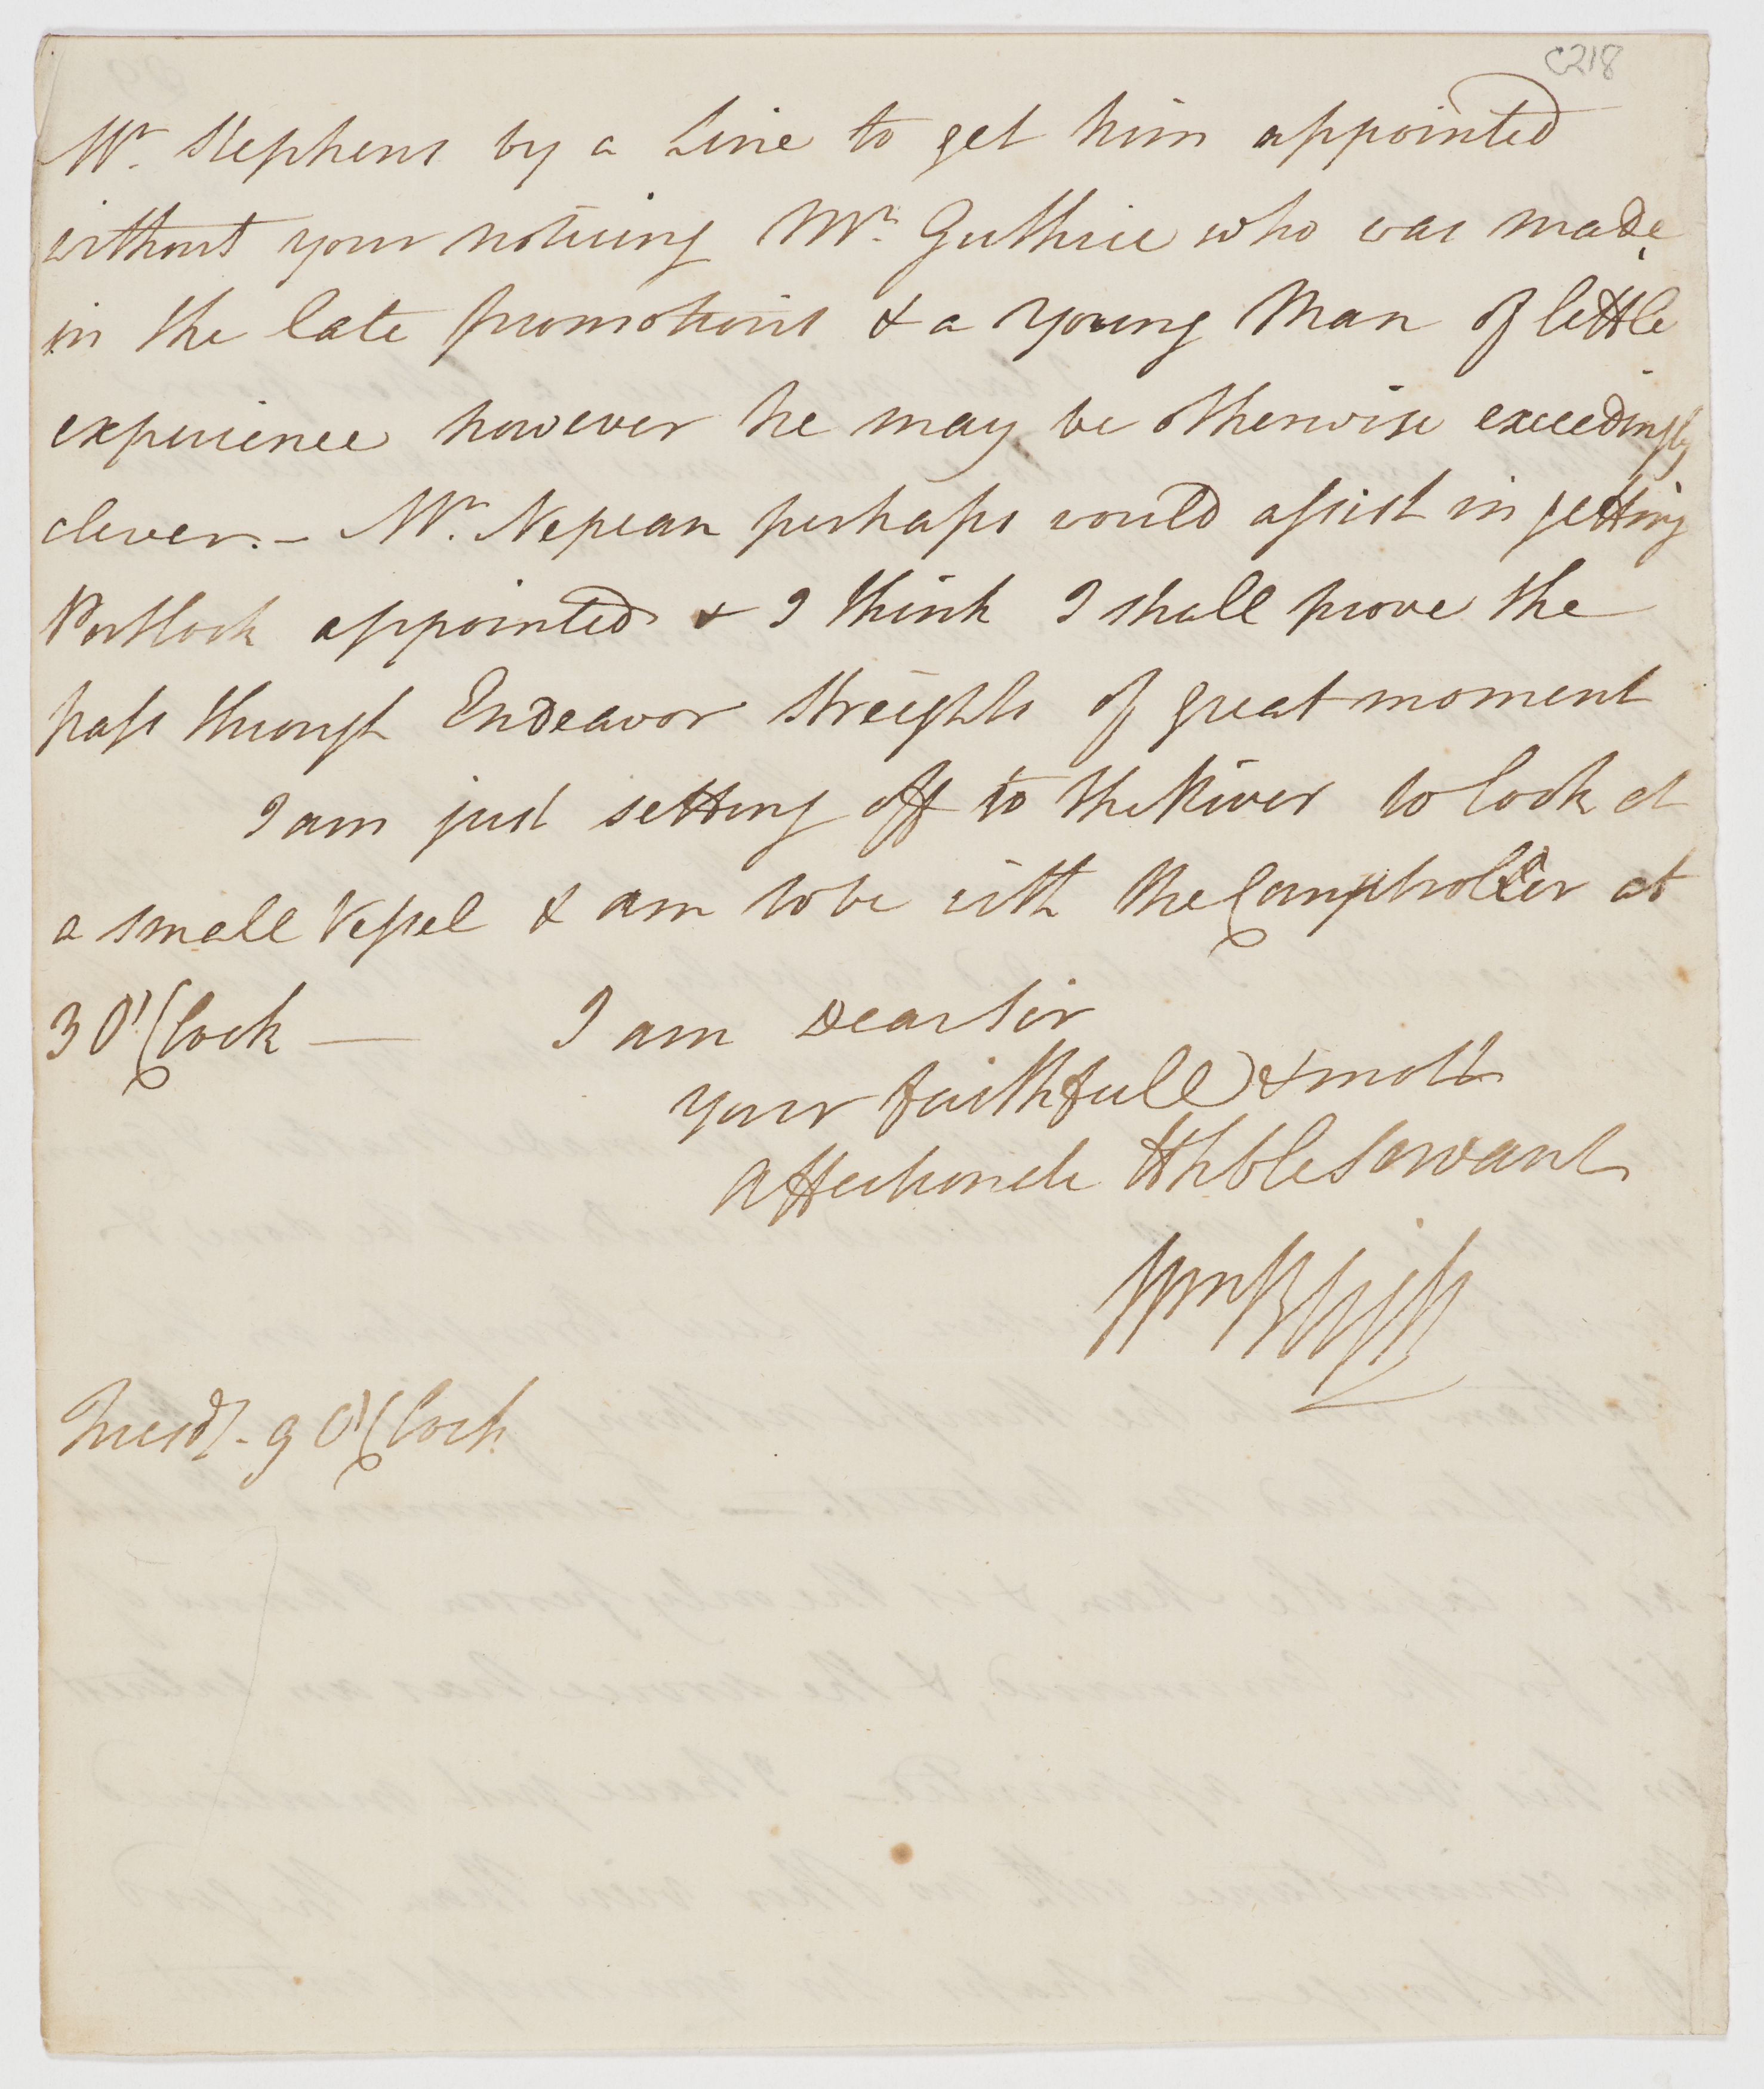 C218
Mr. Stephens by a Line to get him appointed
without your noticing Mr. Guthrie who was made
in the late promotions & a young Man of little
experience however he may be otherwise exceedingly
clever. - Mr. Nepean perhaps would assist in getting
Portlock appointed & I think I shall prove the
pass through Endeavor Streights of great moment
I am just setting off to the River to look at
a small Vessel & am to be with the Comptroller at
3 O'Clock —
I am Dear Sir
your faithfull & most
Affectionate Hhble Servant
Wm Bligh
Tuesdy. 9 O'Clock